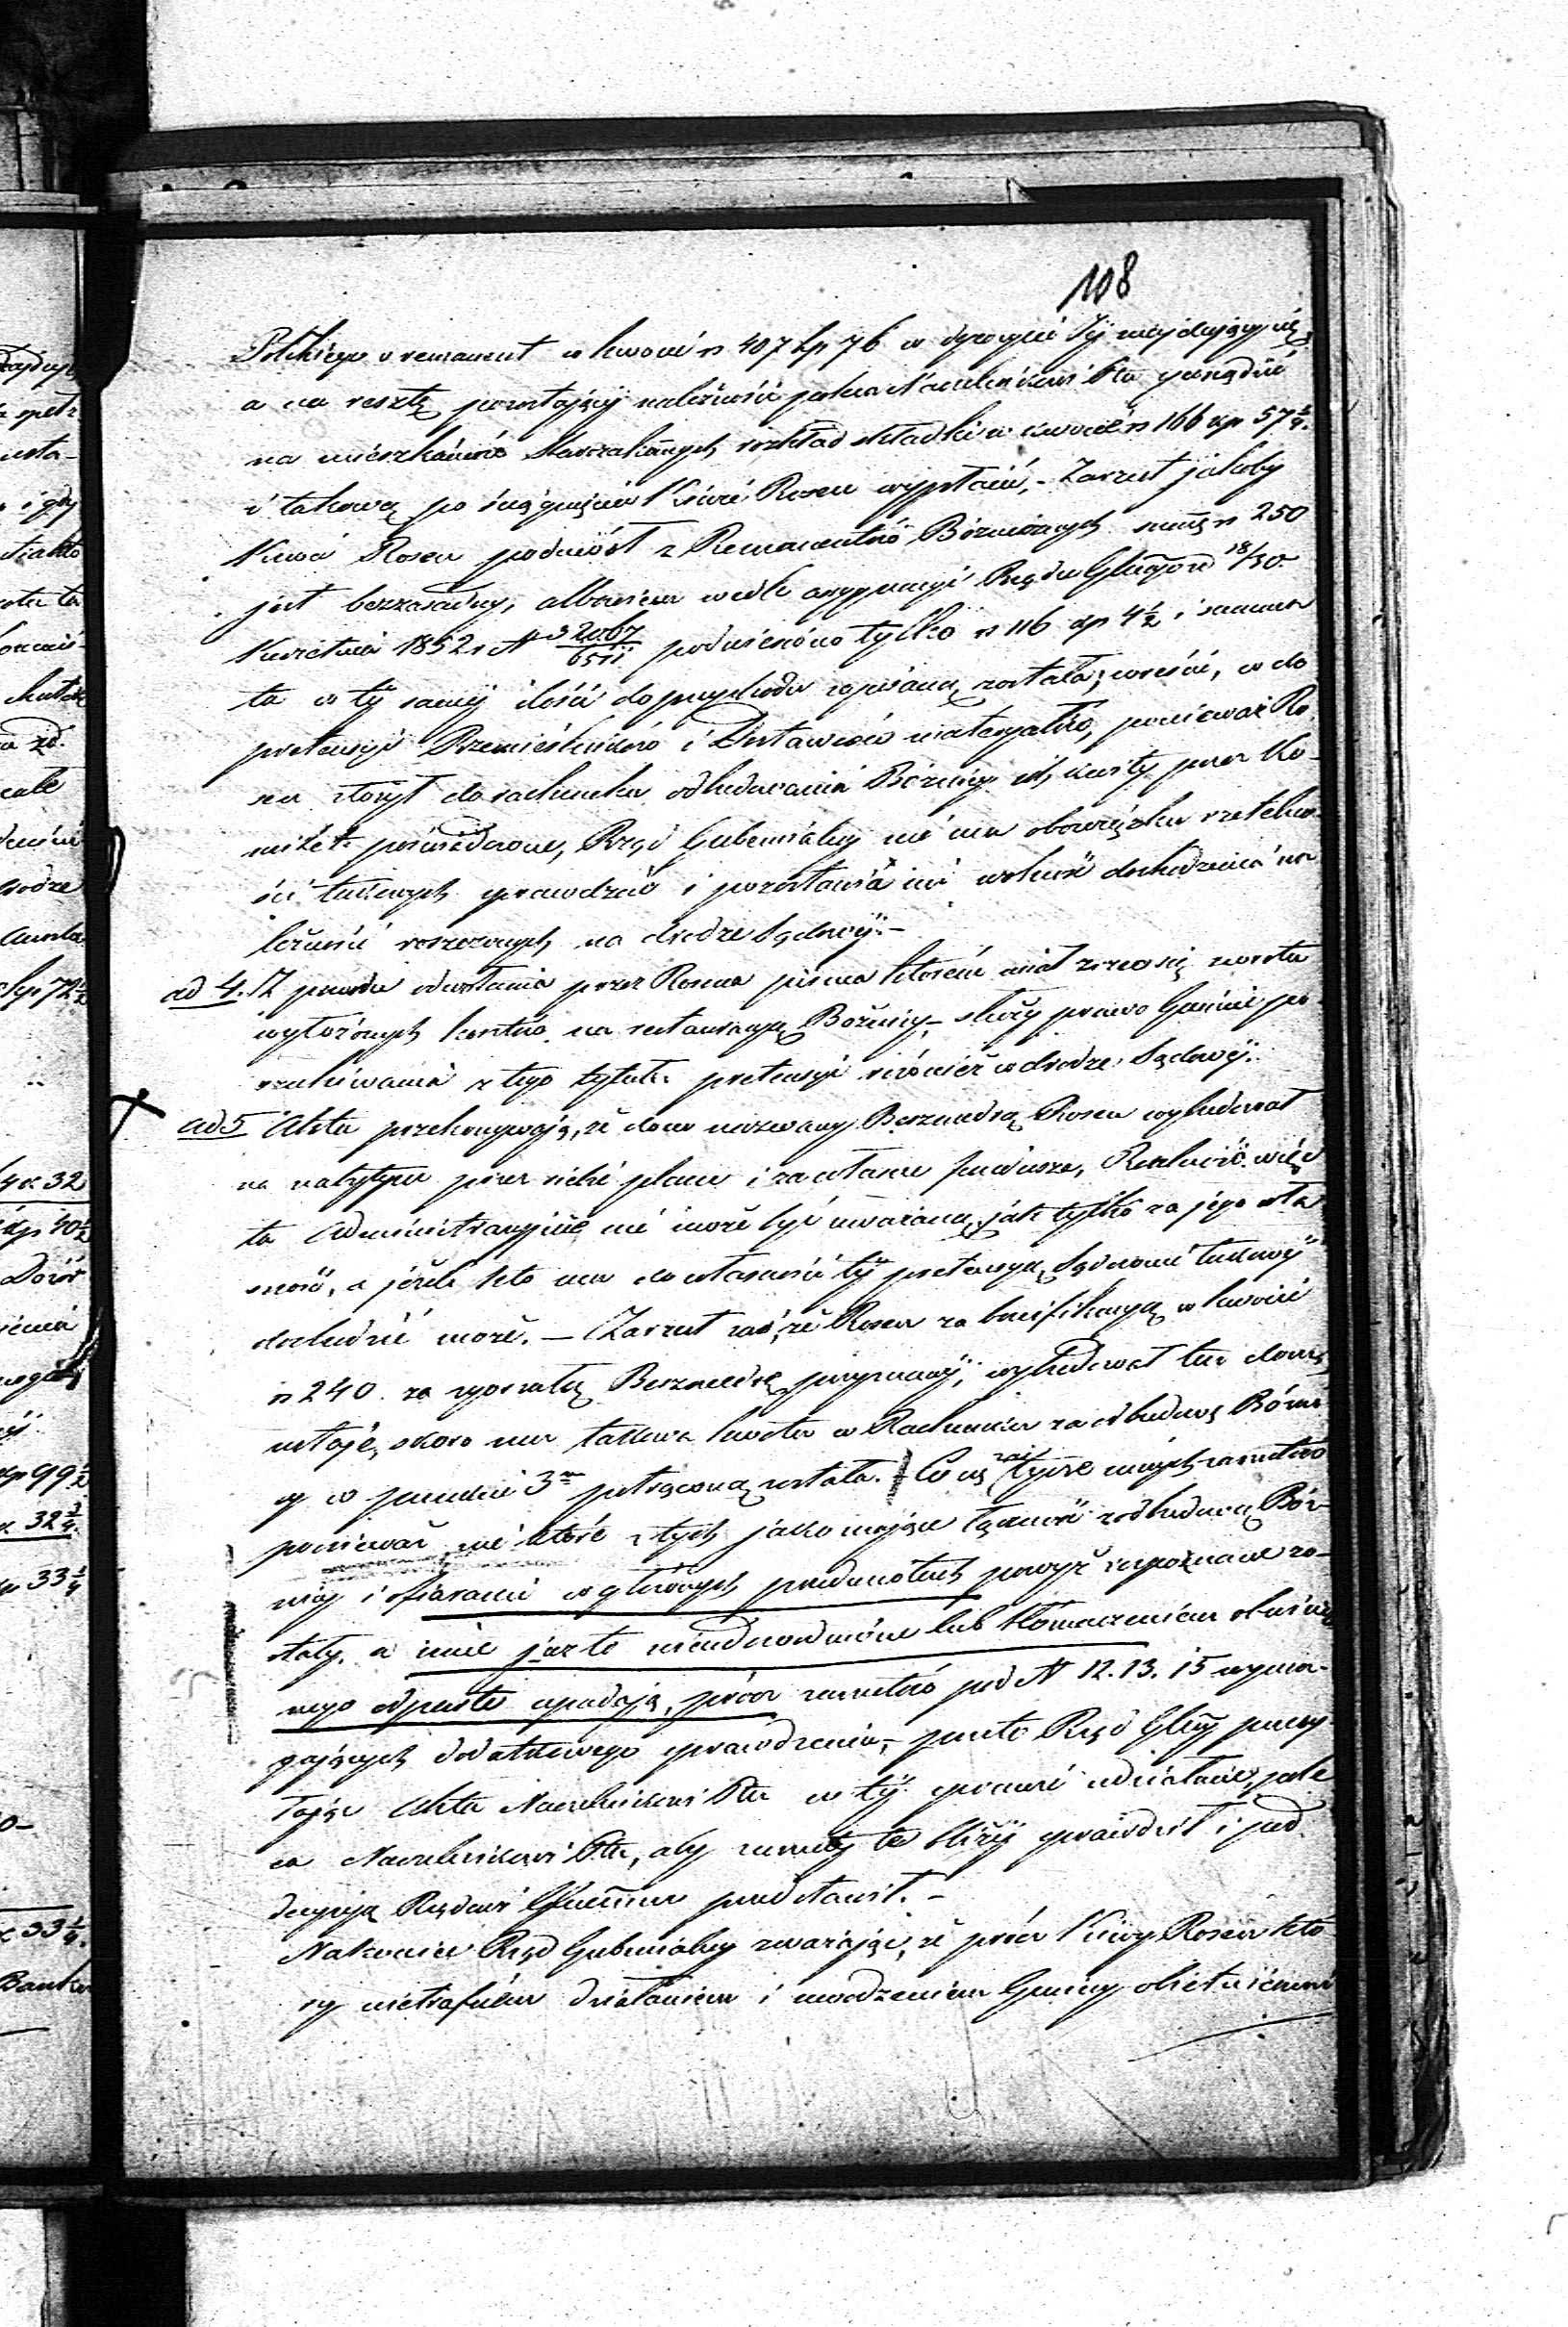 108
Polskiego o remanent w kwocie rs 407 kp 76 w depozycie tej znajdujący się,
a na resztę pozostającej należności poleca Naczelnikowi Ptu porządzić
na mieszkańców Starozakonnych rozkład składki w kwocie rs 166 kp 57 ¾.
i takową po ściągnięciu Kiwie Rosen wypłacić, - Zarzut jakoby
Kiwa Rosen podniósł z Remanentów Bóżniczych summę rs 250
jest bezzasadny, albowiem wedle assygnacyi Rządu Glnego z d 18/30
Kwietnia 1852 r N 32067/6511 podniesiono tylko rs 116 kp 4½ i summa
ta w tej samej ilości do przychodu zapisana została; wreście, co do
pretensyi Rzemieślników i Dostawców materyałów, ponieważ Ro
sen złożył do rachunku odbudowania Bóżnicy ich kwity przez Ko-
mitet poświadczone, Rząd Gubernialny nie ma obowiązku rzetelno-
ści takowych sprawdzać i pozostawia im wolność dochodzenia na
leżności roszczonych na drodze Sądowej. -
ad 4. Z powodu odwołania przez Rosena pisma którem miał zrzec się zwrotu
wyłożonych kosztów na restauracyę Bożnicy, - służy prawo Gminie po-
szukiwania z tego tytułu pretensyi również w drodze Sądowej.
ad 5 Akta przekonywają, że dom nazwany Beszmedrą Rosen wybudował
na nabytym przez siebie placu i za własne fundusze, Realność więc
ta Administracyjnie nie może być uważaną jak tylko za jego wła
sność, a jeżeli kto ma do własności tej pretensyę Sądownie takowej
dochodzić może. - Zarzut zaś, że Rosen za bonifikacyą w kwocie
rs 240 za zgorzałą Beszmedrę przyznanej, wybudował ten dom,
ustaje, skoro ma takowa kwota w Rachunku za odbudowę Bóżni
cy w punkcie 3m potrąconą została. Co się zaś tycze innych zarzutów
ponieważ nie które z tych jako mające łączność z odbudową Bóż-
nicy i ofiarami w głównych przedmiotach powyż rozpoznane zo-
stały, a inne jako nieudowodnione lub tłomaczeniem obwinio
nego odparte upadają, prócz zarzutów pod N 12. 13. 15 wyma-
gających dodatkowego sprawdzenia, - przeto Rząd Glny przesy
łając Akta Naczelnikowi Ptu w tej sprawie udziałane, pole
ca Naczelnikowi Ptu, aby zarzuty te bliżej sprawdził i pod
decyzyą Rządowi Glnemu przedstawił. -
Nakoniec Rząd Gubernialny zważając, że prócz Kiwy Rosen któ
ry nietrafnem działaniem i uwodzeniem Gminy obietnicami